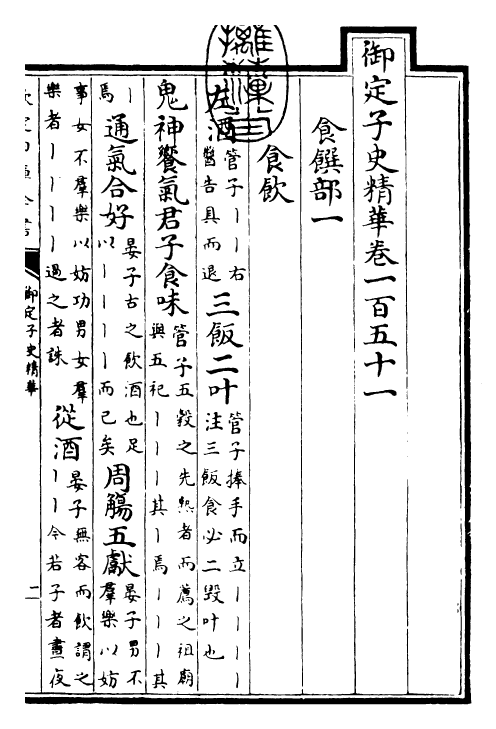 御定子史精華卷一百五十一
食饌部一
食飲
左酒管子丨丨右醬告具而退三飯二叶管子捧手而立丨丨丨丨注三飯食必二毀叶也
鬼神饗氣君子食味管子五穀之先熟者而薦之祖廟與五祀丨丨丨其丨焉丨丨丨其
丨焉通氣合好晏子古之飲酒也足以丨丨丨丨而已矣周觴五獻晏子男不羣樂以妨
事女不羣樂以妨功男女羣樂者丨丨丨丨過之者誅從酒晏子無客而飲謂之丨丨今若子者晝夜
御定子史精華